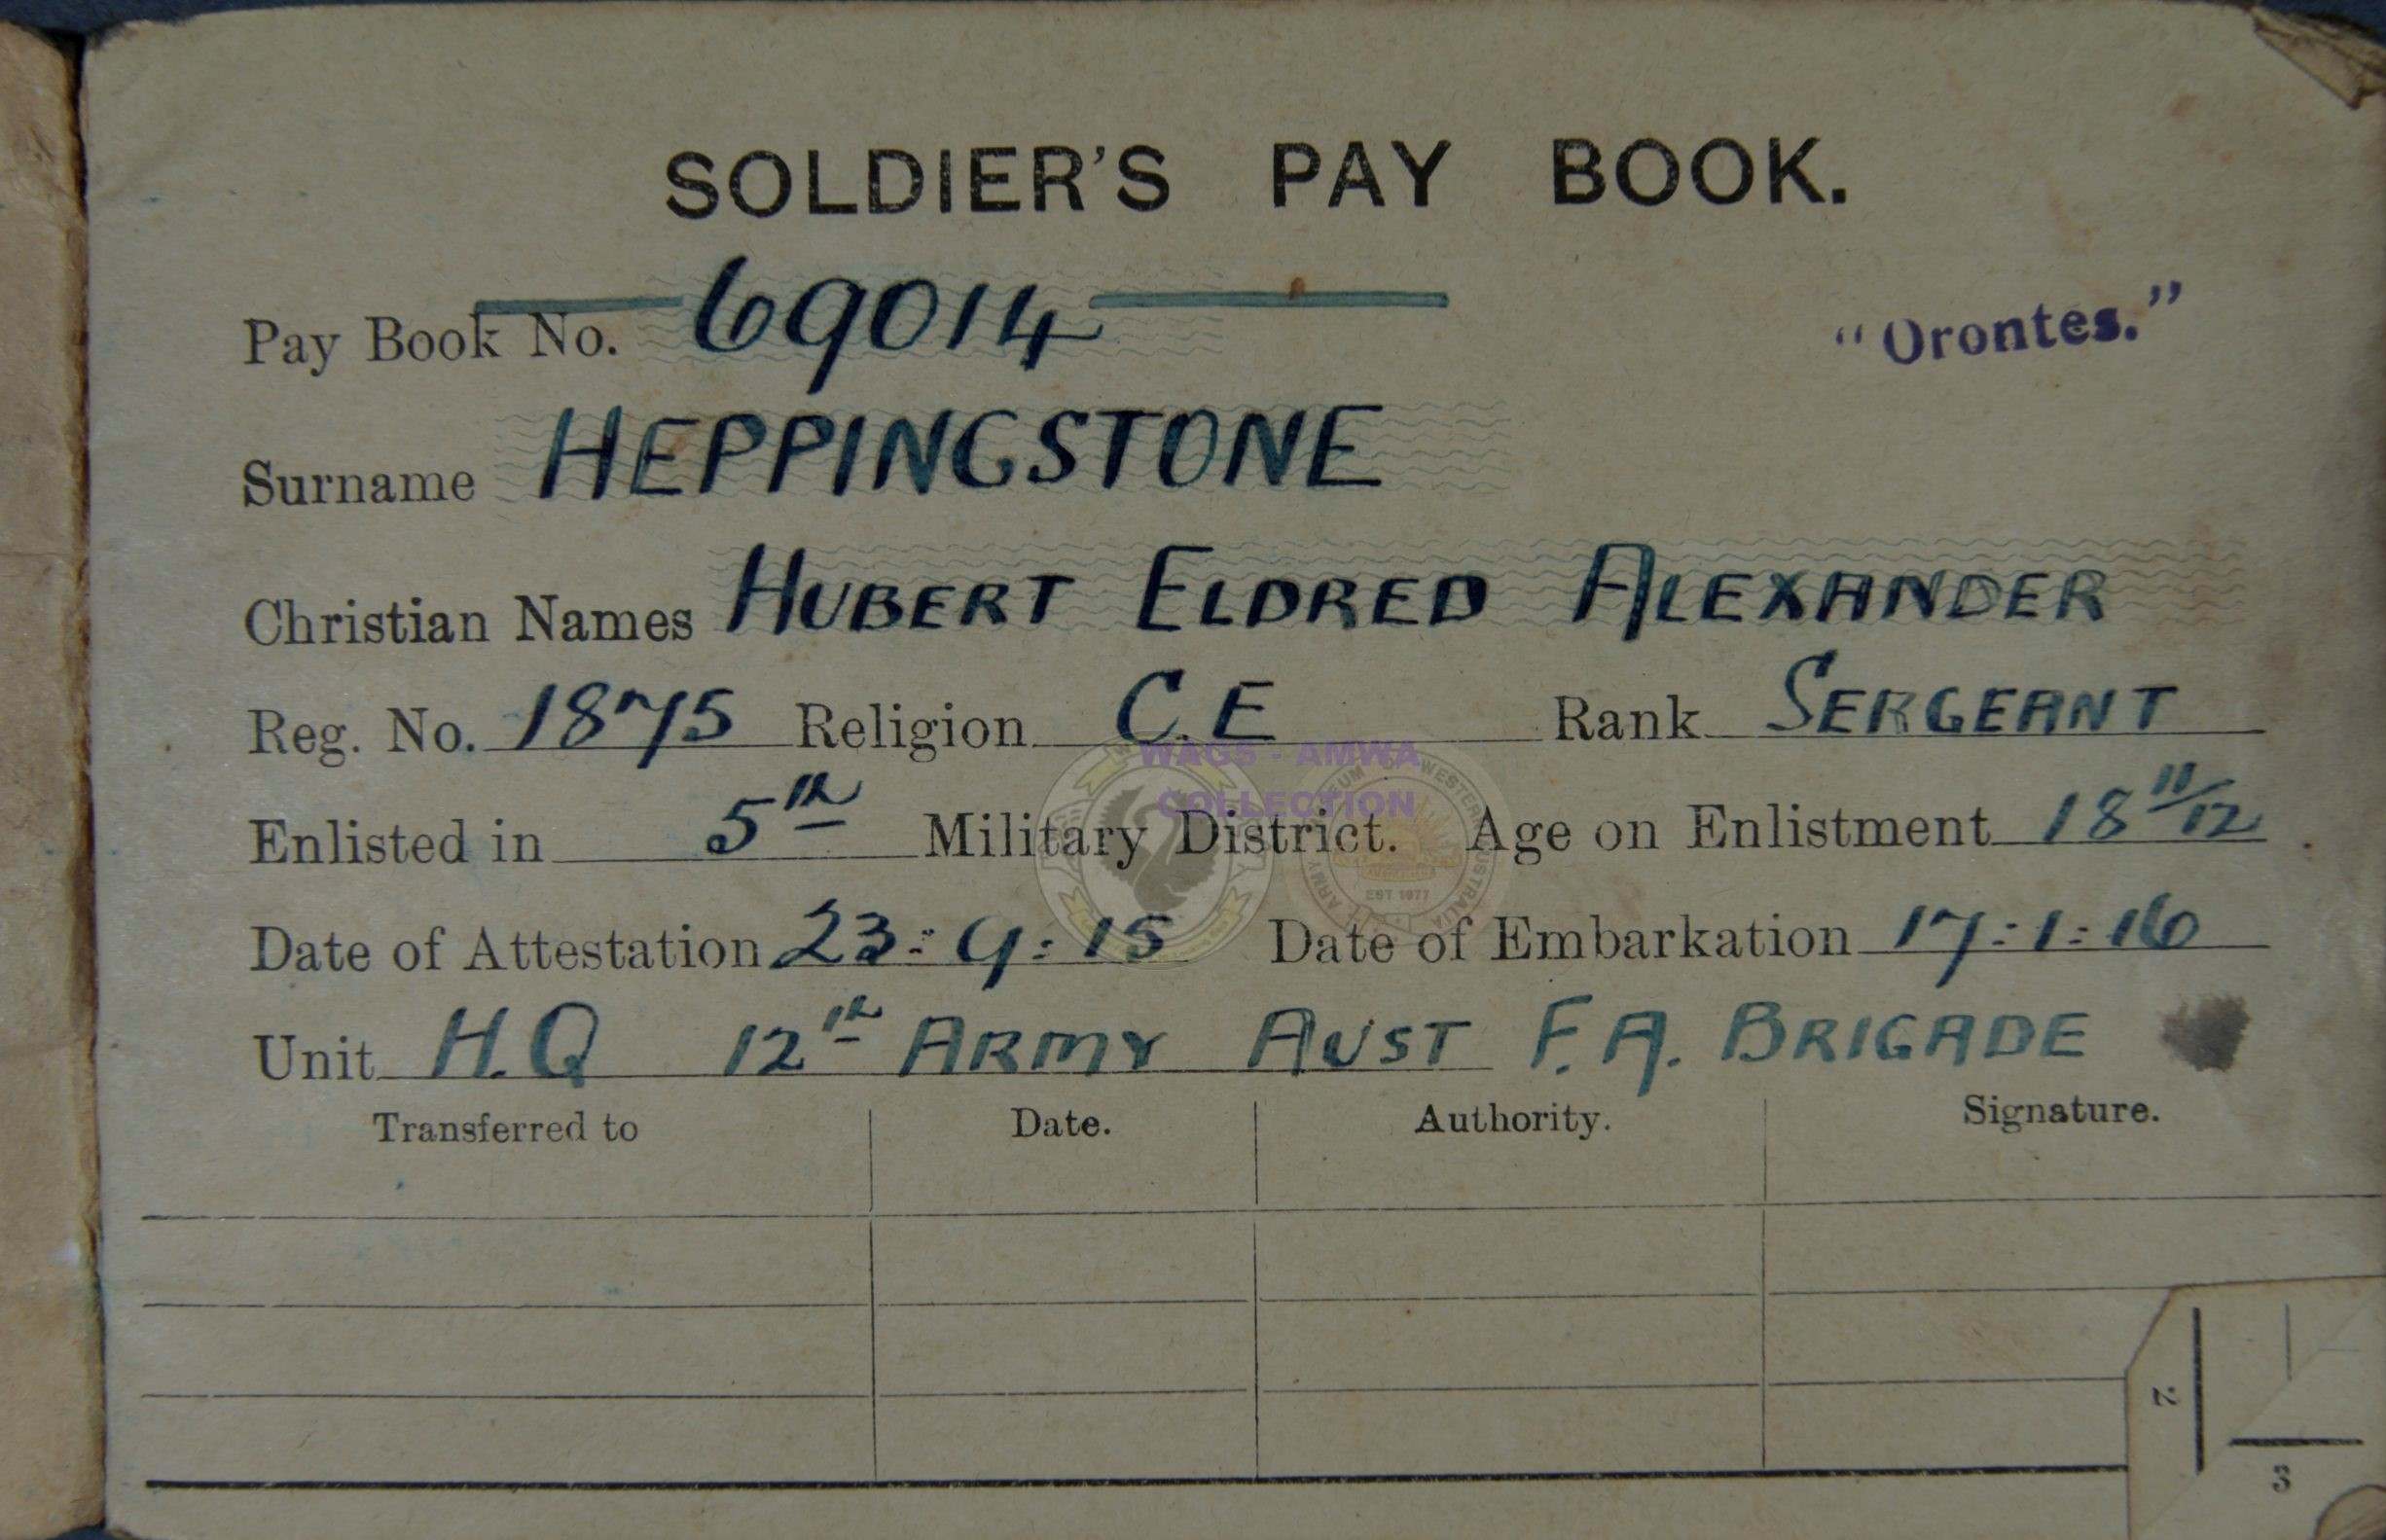 SOLDIER'S PAY BOOK.
Pay Book No. 69014
"Orontes."
Surname HEPPINGSTONE
Christian Names HUBERT ELDRED ALEXANDER
Reg. No. 1875 Religion C.E Rank SERGEANT
WAGS - AMWA
COLLECTION
Enlisted in 5th Military District. Age on Enlistment 18 11/12
EST 1977
Date of Attestation 23:9:15 Date of Embarkation 17:1:16
Unit H.Q 12th ARMY AUST F.A. BRIGADE
Transferred to Date. Authority. Signature.
2
3